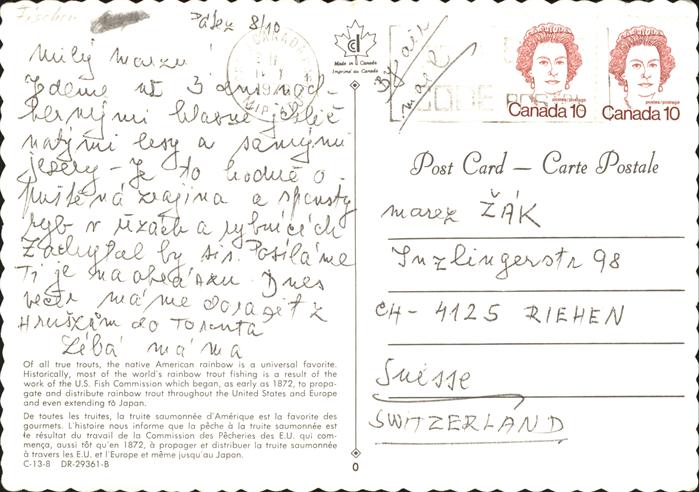 Fischer
Pátek 8/10
Milý Marzu!
Jedeme už 3 dni nád-
hernými hlavně jehlič
natými lesy a samými
jezery - Je to hodně o
puštěná krajina a spousty
ryb v řekách a rybnících
Zachytal by sis. Posíláme
Ti je na obrázku. Dnes
večer máme dorazit k
Hruškám do Toronta
Líbá máma
Of all true trouts, the native American rainbow is a universal favorite.
Historically, most of the world's rainbow trout fishing is a result of the
work of the U.S. Fish Commission which began, as early as 1872, to propa-
gate and distribute rainbow trout throughout the United States and Europe
and even extending to Japan.
De toutes les truites, la truite saumonnée d'Amérique est la favorite des
gourmets. L'histoire nous informe que la pêche à la truite saumonnée est
le résultat du travail de la Commission des Pêcheries des E.U. qui com-
mença, aussi tôt qu'en 1872, à propager et distribuer la truite saumonnée
à travers les E.U. et l'Europe et même jusqu'au Japon.
C-13-8 DR-29361-B
CANADA
Made in Canada
Imprimé au Canada
By air
mail
CODE
postes/postage
Canada 10
postes/postage
Canada 10
Post Card — Carte Postale
Marek ŽÁK
Inzlingerstr 98
CH - 4125 RIEHEN
Suisse
SWITZERLAND
0